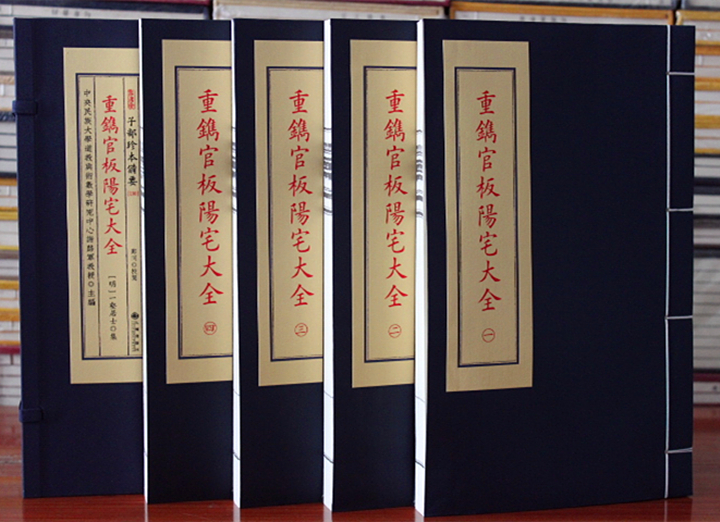 重鐫官板陽宅大全 一
重鐫官板陽宅大全 二
重鐫官板陽宅大全 三
重鐫官板陽宅大全 四
子部珍本備要
重鐫官板陽宅大全
[明]一壑居士○集
中央民族大學道教與術數學研究中心謝路軍教授○主編